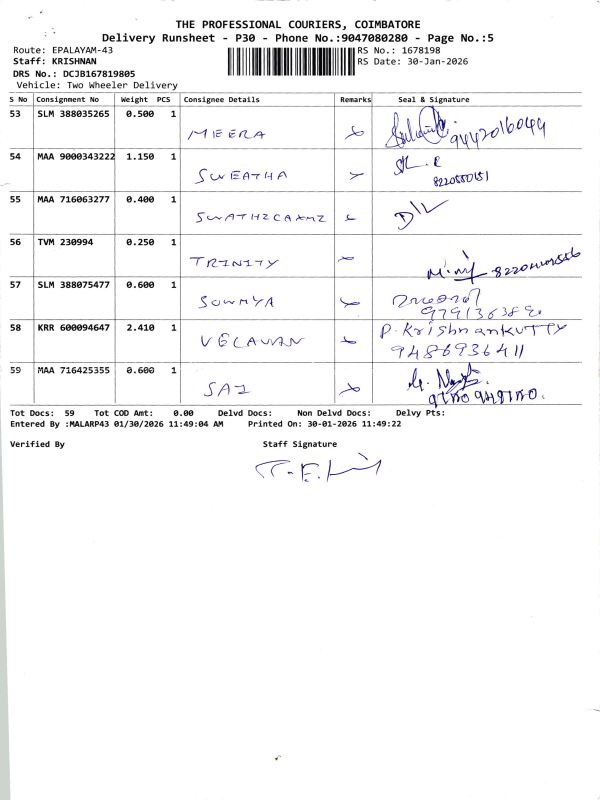 THE PROFESSIONAL COURIERS, COIMBATORE
Delivery Runsheet - P30 - Phone No.:9047080280 - Page No.:5
Route: EPALAYAM-43 RS No.: 1678198
Staff: KRISHNAN RS Date: 30-Jan-2026
DRS No.: DCJB167819805
Vehicle: Two Wheeler Delivery
S No Consignment No Weight PCS Consignee Details Remarks Seal & Signature
53 SLM 388035265 0.500 1
MEERA 9442016044
54 MAA 9000343222 1.150 1
SWEATHA
55 MAA 716063277 0.400 1
56 TVM 230994 0.250 1
TRINITY
57 SLM 388075477 0.600 1
SOWMYA
58 KRR 600094647 2.410 1 P. Krishnankutty
VELAVAN 9486936411
59 MAA 716425355 0.600 1
SAI
Tot Docs: 59 Tot COD Amt: 0.00 Delvd Docs: Non Delvd Docs: Delvy Pts:
Entered By :MALARP43 01/30/2026 11:49:04 AM Printed On: 30-01-2026 11:49:22
Verified By Staff Signature